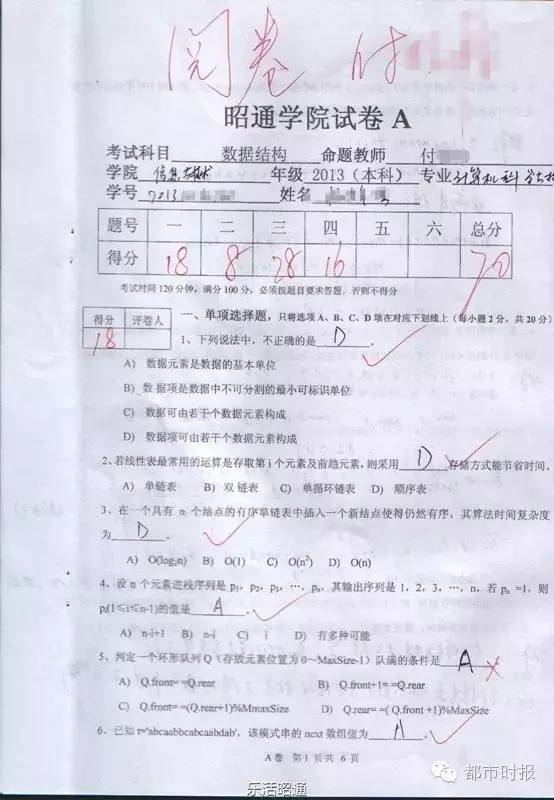 阅卷
昭通学院试卷 A
考试科目 数据结构 命题教师 付
学院 信息技术 年级 2013（本科） 专业 计算机科学与技
学号 2013 姓名
题号 一 二 三 四 五 六 总分
得分 18 8 28 16 70
考试时间 120 分钟，满分 100 分，必须按题目要求答题，否则不得分
得分 评卷人
18
一、单项选择题，只将选项 A、B、C、D 填在对应下划线上（每小题 2 分，共 20 分）
1、下列说法中，不正确的是 D 。
A) 数据元素是数据的基本单位
B) 数据项是数据中不可分割的最小可标识单位
C) 数据可由若干个数据元素构成
D) 数据项可由若干个数据元素构成
2、若线性表最常用的运算是存取第 i 个元素及前趋元素,则采用 D 存储方式能节省时间。
A) 单链表 B) 双链表 C) 单循环链表 D) 顺序表
3、在一个具有 n 个结点的有序单链表中插入一个新结点使得仍然有序，其算法时间复杂度
为 D 。
A) O(log₂n) B) O(1) C) O(n²) D) O(n)
4、设 n 个元素进栈序列是 p₁，p₂，p₃，…，pₙ，其输出序列是 1，2，3，…，n，若 pₙ =1，则
pᵢ(1≤i≤n-1)的值是 A 。
A) n-i+1 B) n-i C) i D) 有多种可能
5、判定一个环形队列 Q（存放元素位置为 0～MaxSize-1）队满的条件是 A
A) Q.front= =Q.rear B) Q.front+1= =Q.rear
C) Q.front= =(Q.rear+1)%MmaxSize D) Q.rear= =( Q.front +1)%MaxSize
6、已知 t='abcaabbcabcaabdab'，该模式串的 next 数组值为 A 。
A 卷 第 1 页 共 6 页
乐活昭通
都市时报